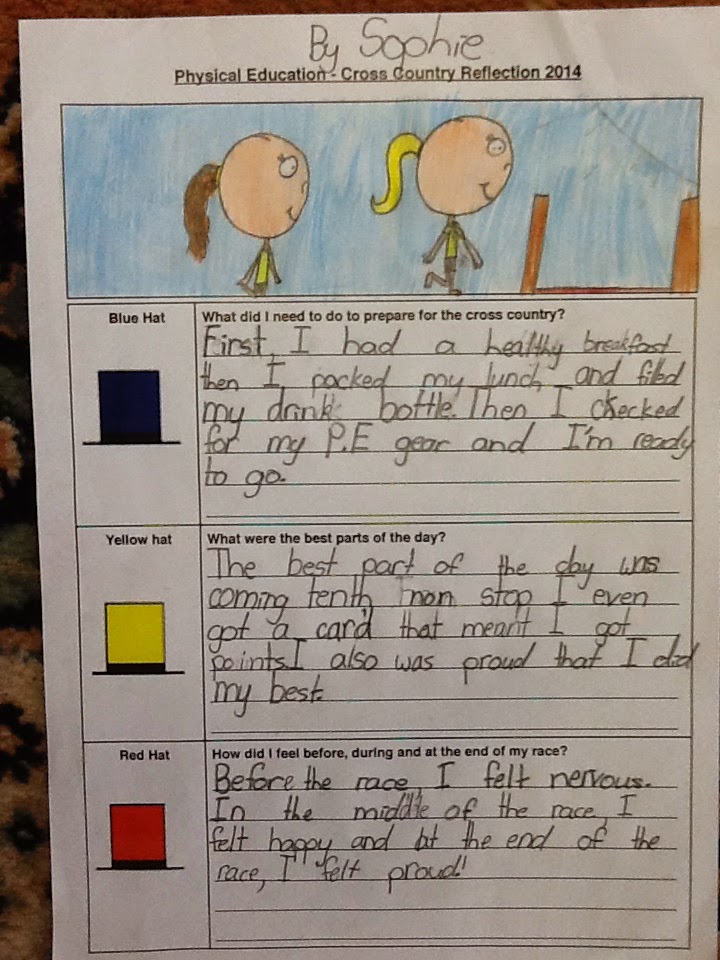 By Sophie
Physical Education - Cross Country Reflection 2014
Blue Hat
What did I need to do to prepare for the cross country?
First, I had a healthy breakfast
then I packed my lunch and filled
my drink bottle. Then I checked
for my P.E gear and I'm ready
to go.
Yellow hat
What were the best parts of the day?
The best part of the day was
coming tenth, non stop I even
got a card that meant I got
points. I also was proud that I did
my best.
Red Hat
How did I feel before, during and at the end of my race?
Before the race I felt nervous.
In the middle of the race, I
felt happy and at the end of the
race, I felt proud!